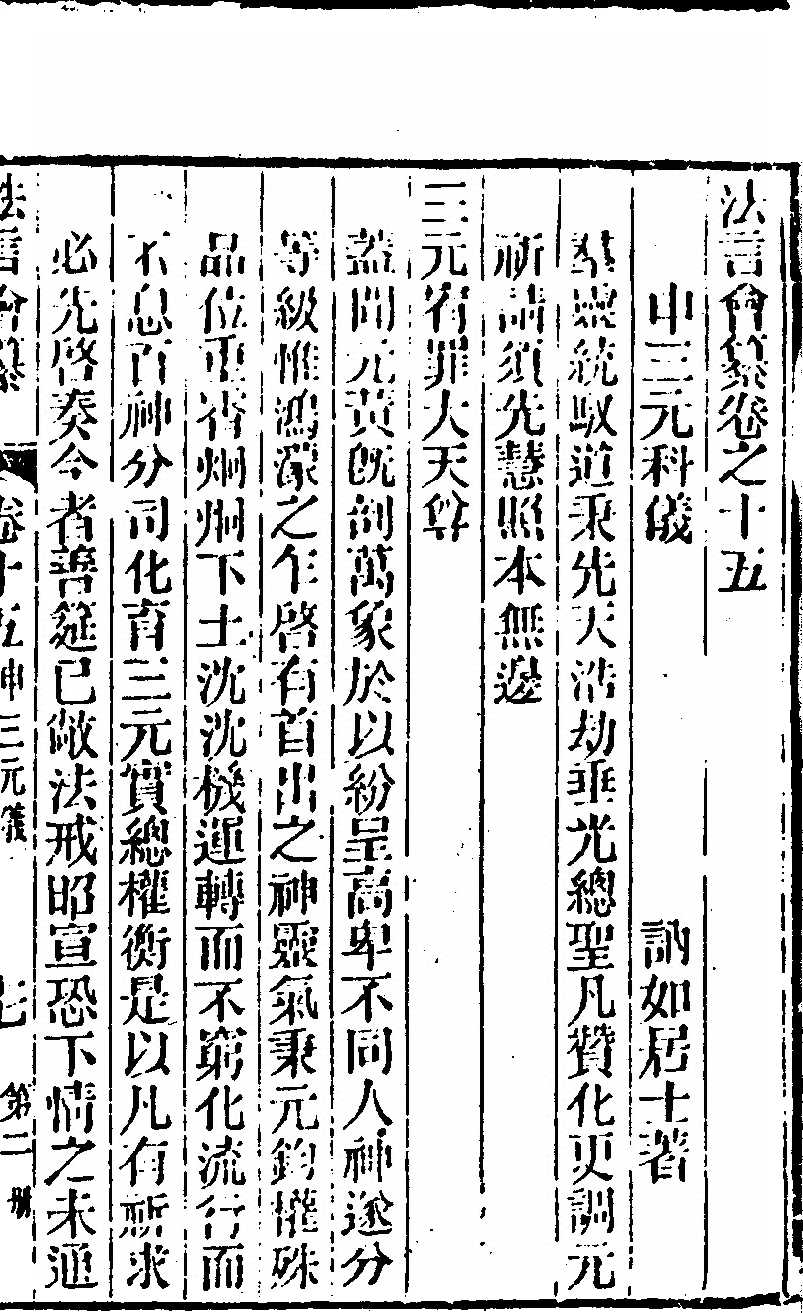 法言會纂卷之十五
申三元科儀　訥如居士著
羣靈統馭道秉先天浩劫垂光總聖凡贊化更調元
祈請須先慧照本無邊
三元宥罪大天尊
蓋聞元黃旣剖萬象於以紛呈高卑不同人神遂分
等級惟鴻濛之乍啓有首出之神靈氣秉元鈞權殊
品位重睿烱烱下土沈沈機運轉而不窮化流行而
不息百神分司化育三元實總權衡是以凡有祈求
必先啓奏今者善筵已敞法戒昭宣恐下情之未通
法言會纂　卷十五申三元儀　七　第二册